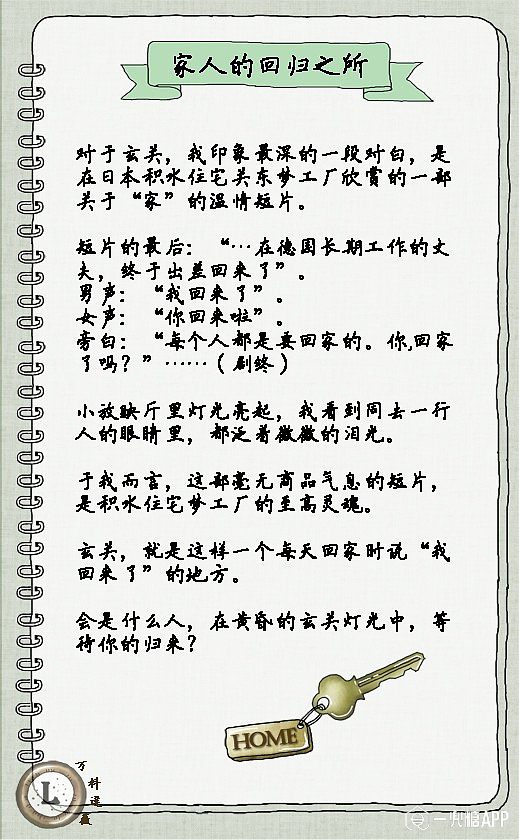 家人的回归之所
对于玄关，我印象最深的一段对白，是
在日本积水住宅关东梦工厂欣赏的一部
关于“家”的温情短片。
短片的最后：“…在德国长期工作的丈
夫，终于出差回来了”。
男声：“我回来了”。
女声：“你回来啦”。
旁白：“每个人都是要回家的。你,回家
了吗？”……（剧终）
小放映厅里灯光亮起，我看到同去一行
人的眼睛里，都泛着微微的泪光。
于我而言，这部毫无商品气息的短片，
是积水住宅梦工厂的至高灵魂。
玄关，就是这样一个每天回家时说“我
回来了”的地方。
会是什么人，在黄昏的玄关灯光中，等
待你的归来？
HOME
L
万科
一兜糖APP